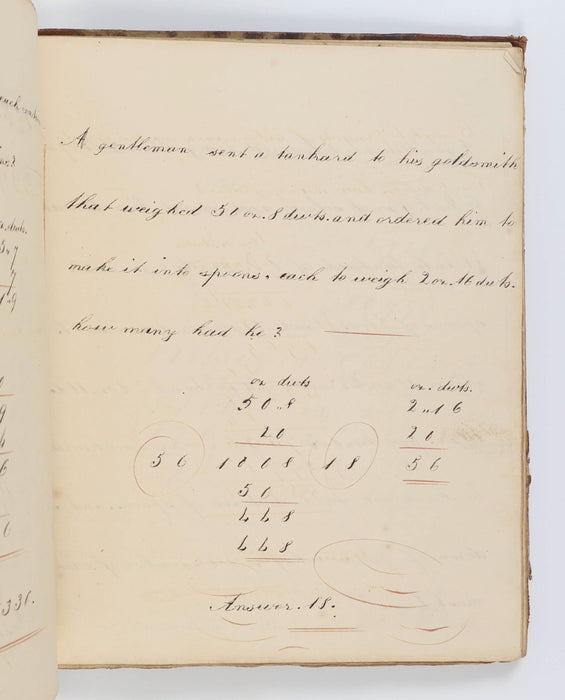 each
A gentleman sent a tankard to his goldsmith
that weighed 50 oz. 8 dwts. and ordered him to
make it into spoons, each to weigh 2 oz. 16 dwts.
how many had he?
oz dwts
50 „ 8
20
56 ) 1008 ( 18
56
448
448
oz. dwts.
2 „ 16
20
56
Answer. 18.
dwts.
336.